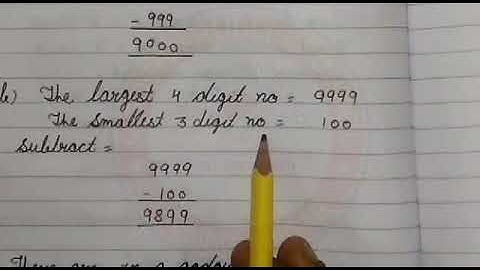 - 999
9000
b) The largest 4 digit no = 9999
The smallest 3 digit no = 100
Subtract =
9999
- 100
9899
There are in a godown